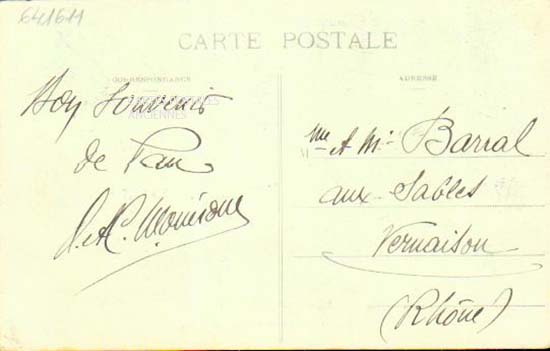 641611
CARTE POSTALE
CORRESPONDANCE
ADRESSE
Bon Souvenir
ANCIENNES
de Pau
Mme & Mr Barral
aux Sables
Vernaison
(Rhône)